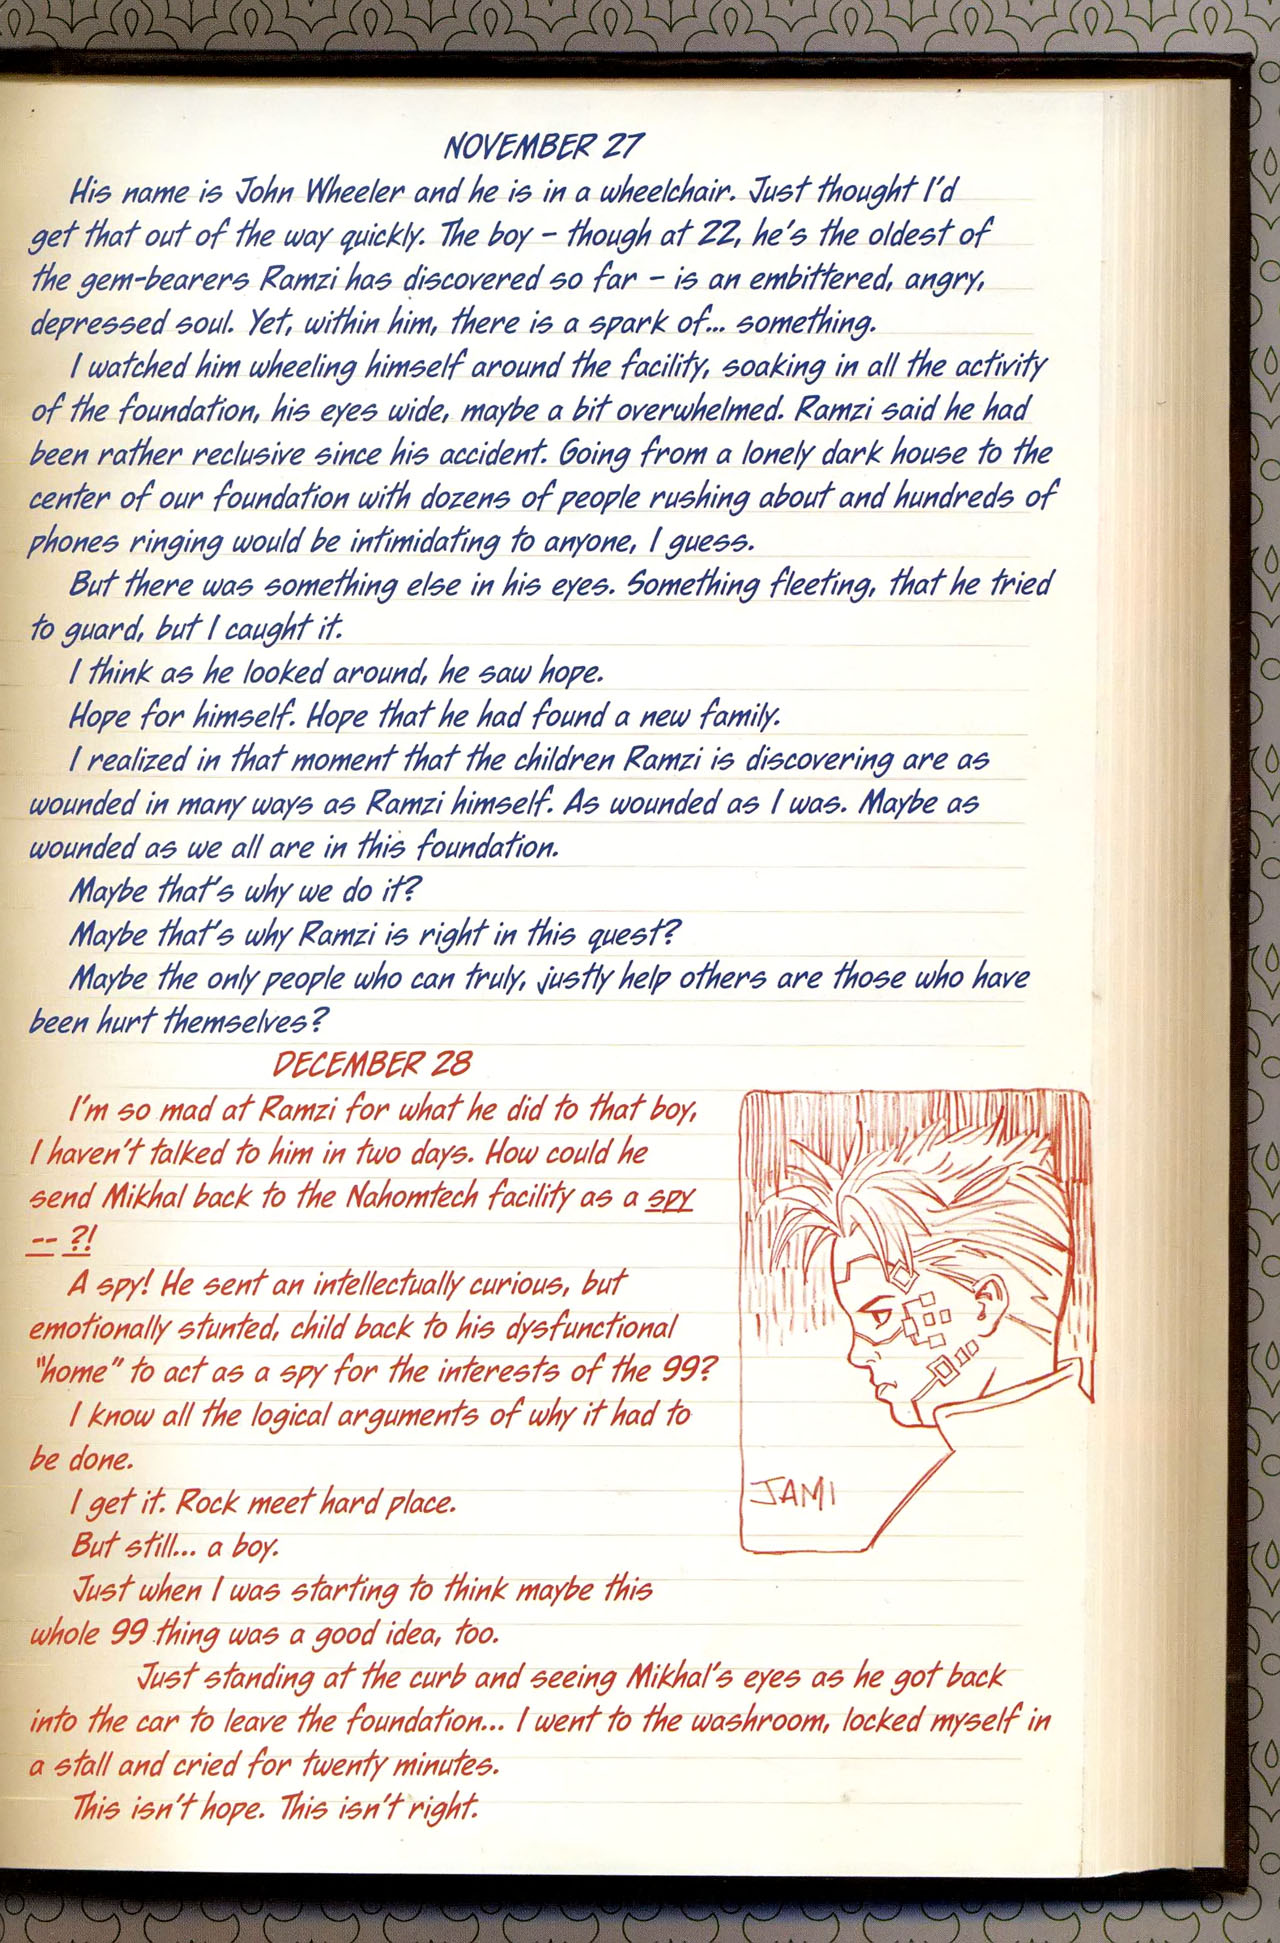 NOVEMBER 27
His name is John Wheeler and he is in a wheelchair. Just thought I'd
get that out of the way quickly. The boy – though at 22, he's the oldest of
the gem-bearers Ramzi has discovered so far – is an embittered, angry,
depressed soul. Yet, within him, there is a spark of... something.
I watched him wheeling himself around the facility, soaking in all the activity
of the foundation, his eyes wide, maybe a bit overwhelmed. Ramzi said he had
been rather reclusive since his accident. Going from a lonely dark house to the
center of our foundation with dozens of people rushing about and hundreds of
phones ringing would be intimidating to anyone, I guess.
But there was something else in his eyes. Something fleeting, that he tried
to guard, but I caught it.
I think as he looked around, he saw hope.
Hope for himself. Hope that he had found a new family.
I realized in that moment that the children Ramzi is discovering are as
wounded in many ways as Ramzi himself. As wounded as I was. Maybe as
wounded as we all are in this foundation.
Maybe that's why we do it?
Maybe that's why Ramzi is right in this quest?
Maybe the only people who can truly, justly help others are those who have
been hurt themselves?
DECEMBER 28
I'm so mad at Ramzi for what he did to that boy,
I haven't talked to him in two days. How could he
send Mikhal back to the Nahomtech facility as a spy
-- ?!
A spy! He sent an intellectually curious, but
emotionally stunted, child back to his dysfunctional
"home" to act as a spy for the interests of the 99?
I know all the logical arguments of why it had to
be done.
I get it. Rock meet hard place.
But still... a boy.
Just when I was starting to think maybe this
whole 99 thing was a good idea, too.
Just standing at the curb and seeing Mikhal's eyes as he got back
into the car to leave the foundation... I went to the washroom, locked myself in
a stall and cried for twenty minutes.
This isn't hope. This isn't right.
JAMI